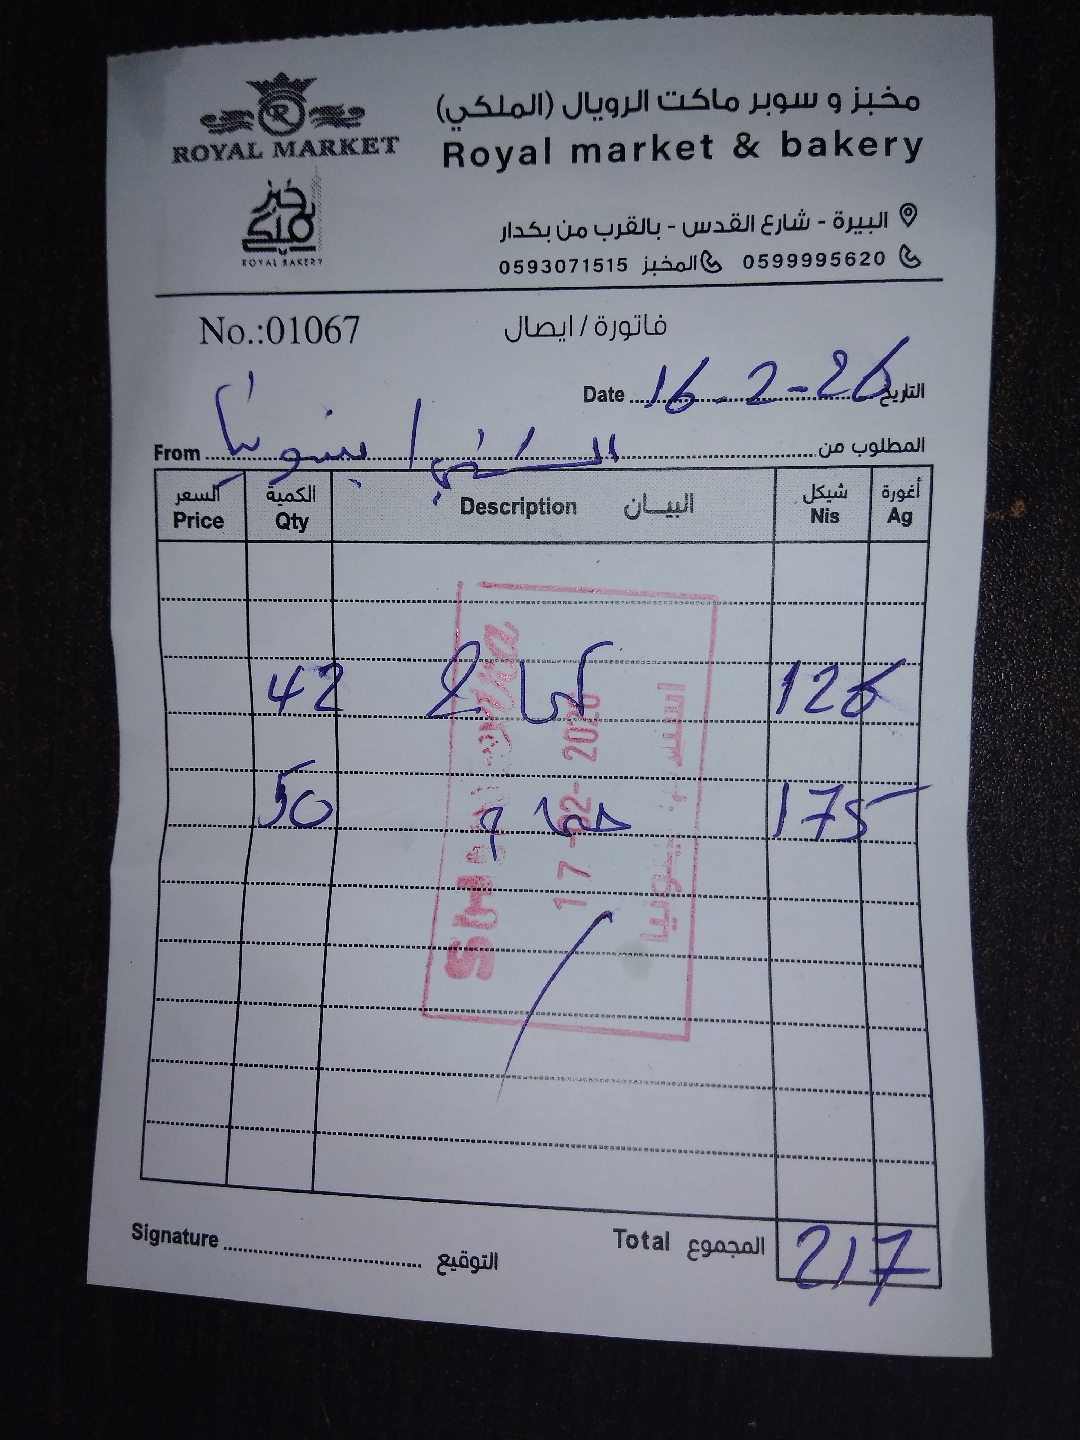 ROYAL MARKET
خبز ملكي
ROYAL BAKERY
مخبز و سوبر ماكت الرويال (الملكي)
Royal market & bakery
البيرة - شارع القدس - بالقرب من بكدار
0599995620 المخبز 0593071515
No.:01067
فاتورة / ايصال
Date 16-2-26 التاريخ
From المطلوب من
السعر الكمية البيــان شيكل أغورة
Price Qty Description Nis Ag
42 126
50 175
17 -02- 2026
Total المجموع 217
Signature التوقيع